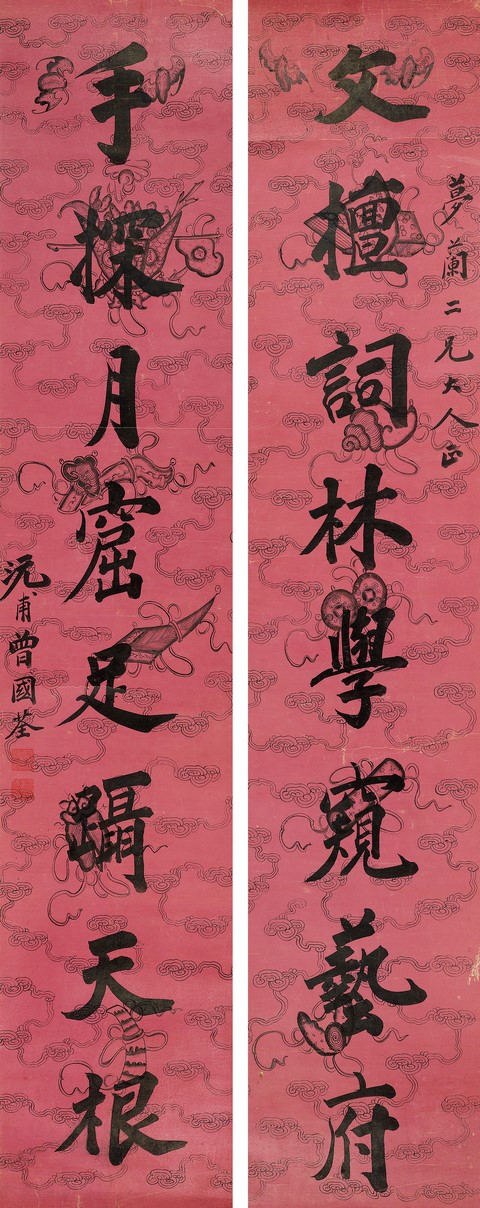 夢蘭二兄大人正
文擅詞林學窺藝府
手探月窟足躡天根
沅甫曾國荃